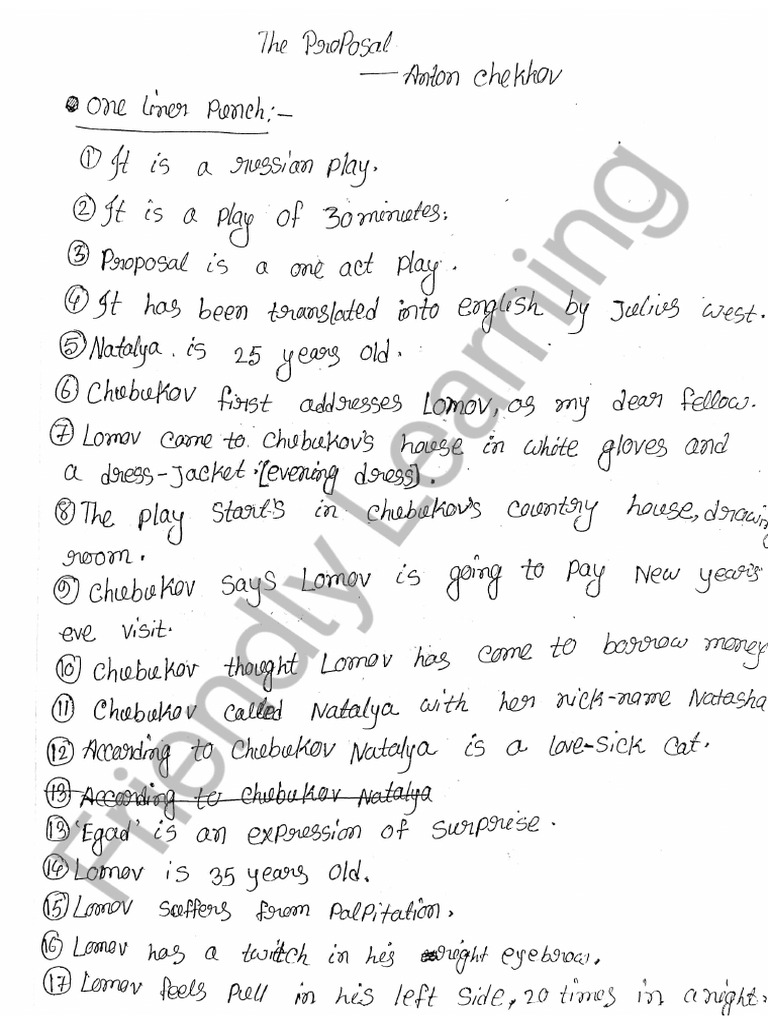 The Proposal
— Anton Chekhov
One liner Punch:-
① It is a russian play.
② It is a play of 30 minutes.
③ Proposal is a one act play.
④ It has been translated into english by Julius west.
⑤ Natalya. is 25 years old.
⑥ Chubukov first addresses Lomov, as my dear fellow.
⑦ Lomov came to Chubukov's house in white gloves and
a dress-jacket.[evening dress].
⑧ The play start's in Chubukov's country house, drawin
room.
⑨ Chubukov says Lomov is going to pay New year's
eve visit.
⑩ Chubukov thought Lomov has come to borrow money
⑪ Chubukov called Natalya with her nick-name Natasha
⑫ According to Chubukov Natalya is a love-sick cat.
⑬ According to Chubukov Natalya
⑬ 'Egad' is an expression of surprise.
⑭ Lomov is 35 years old.
⑮ Lomov suffers from Palpitation.
⑯ Lomov has a twitch in his right eyebrow.
⑰ Lomov feels pull in his left side, 20 times in a night.
Friendly Learning